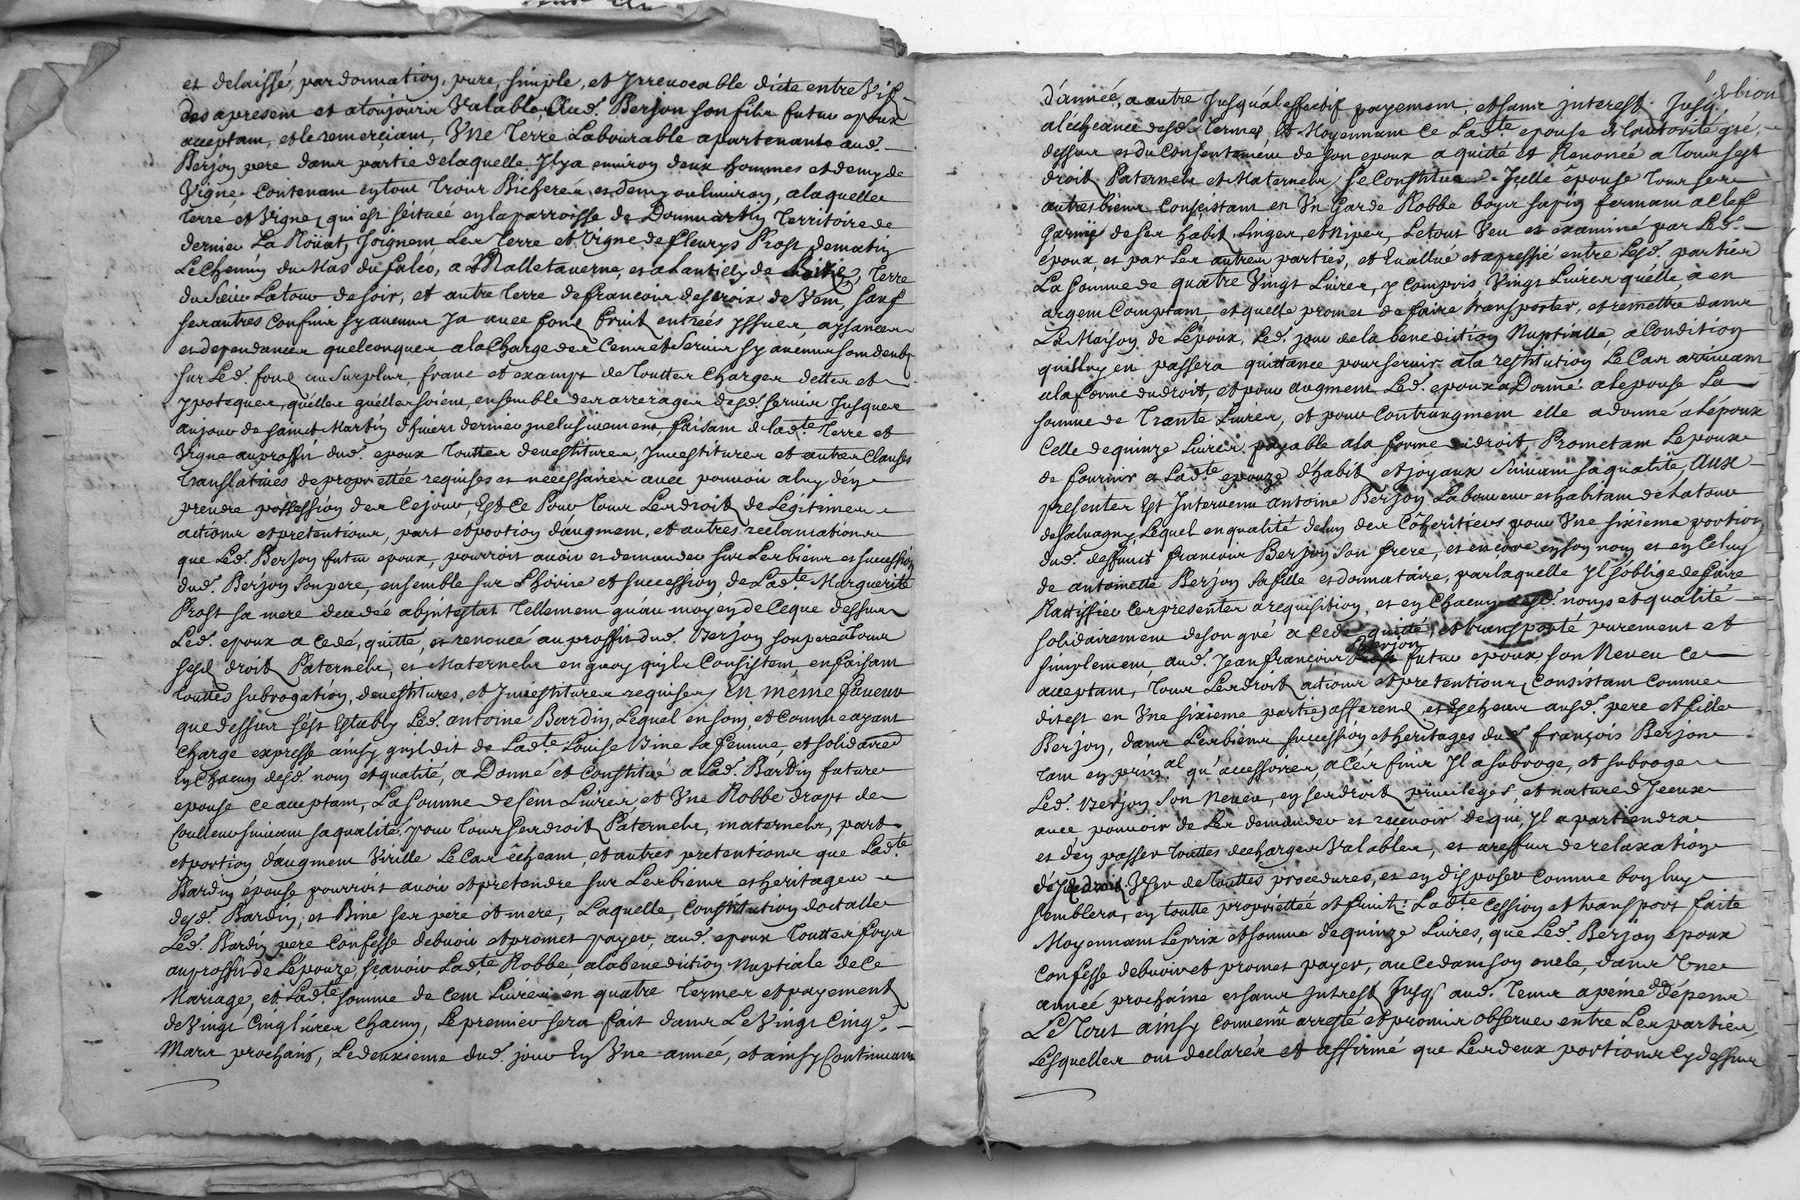 et delaissé, par donnation, pure, simple, et Irrevocable dicte entre Vif
des apresent et atoujours Valable Aud. Berjon son fils futur epoux
acceptam, et le remerciam, Vne Terre Labourable apartenante aud.
Berjon pere dans partie de laquelle Ilya environ deux hommes et demy de
Vigne, contenam en tout Trois Bicherées et demy ou environ, a laquelle
terre et Vigne qui est scituée en la parroisse de Dommartin Territoire de
dernier La Roüat, Joignent Les Terre et Vigne de fleurys Prost de matin
Le Chemin du Mas du falco, a Malletaverne, et a Lantilly de bize, Terre
du sieur Latour de soir, et autre Terre de francois descroix de Vent, sauf
ses autres confins sy aucuns Ja avec fond fruits entrées Issues aysances
et dependances quelconques a la charge des Cens et Servis sy aucuns sont deubs
sur Led. fond au surplus, franc et exampt de Toutte charges dettes et
ypoteques, quelles quelles soient, ensemble des arrerages desd. servis Jusques
au jour de saint Martin d'hivert dernier inclusivement, faisant de lad.te Terre et
Vigne au proffit dud. epoux Touttes devestitures, Investitures et autres Clauses
Translatives de propriettée requises et nécessaires avec pouvoir a luy d'en
prendre possession des ce jour, Et Ce Pour tous Les droits de Legitimes
actions et pretentions, part et portion d'augment, et autres reclamations
que Led. Berjon futur epoux, pourroit avoir et demander sur Les biens et succession
dud. Berjon son pere, ensemble sur L'hoirie et succession de Lad.te Marguerite
Prost sa mere decedée abintestat Tellement qu'au moyen de Ceque dessus
Led. epoux a cedé, quitté, et renoncé au proffit dud. Berjon son pere a Tous
sesd. droits Paternels, et Maternels en quoy quils Consistent, en faisant
Touttes subrogation, devestitures, et Investitures requises, En même faveur
que dessus s'est Estably Led. antoine Bardin, Lequel en son, et comme ayant
Charge expresse ainsy qu'il dit de Lad.te Louise Bine sa femme, et solidaire
En Chacun desd. nom et qualité, a Donné et Constitué a Lad. Bardin future
epouse ce acceptam, La somme de Cent Livres et Vne Robbe drapt de
Couleur suivant sa qualité, pour Tous ses droits Paternels, maternels, part
et portion d'augment Virille Le Cas êcheant, et autres pretentions que Lad.te
Bardin épouse pourroit avoir et pretendre sur Les biens et heritages
desd. Bardin, et Bine ses pere et mere, Laquelle Constitution doctalle
Led. Bardin pere Confesse debvoir et promet payer, aud. epoux Touttes foys
au proffit de Lepouze, sçavoir Lad.te Robbe, a la benediction Nuptiale de Ce
Mariage, et Lad.te somme de cent Livres en quatre Termes et payement
de Vingt Cinq Livres Chacun, Le premier sera fait dans Le Vingt Cinq.
Mars prochain, Le deuxieme dud. jour En Vne année, et ainsy Continuant
d'année, a autre Jusqu'a leffectif payement, et sans interest Jusq.
a lecheance desd. Termes, Et Moyennant Ce Lad.te epouse de lautorité gré,
dessus et du Consentement de son epoux a quitté et Renoncé a Tous sesd.
droits Paternels et Maternels Se Constitue Icelle épouse Tous ses
autres biens Consistant en Vn Garde Robbe boys sapin fermant a Clef
Garnis de ses habits Linges, et Nipes, Le tout Veu et examiné par Led.
epoux, et par Les autres parties, et Evallué et apressié entre Lesd. parties
La Somme de quatre Vingt Livres, y compris Vingt Livres quelle a en
argent Comptant, et quelle promet de faire transporter, et remettre dans
La Maison de Lépoux, Led. jour de la benediction Nuptialle, a Condition
quilluy en passera quittance pour servir, a la restitution Le Cas arrivant
a la forme du droit, et pour augment Led. epoux a Donné a Lepouse La
somme de Trante Livres, et pour Contraugment elle a donné a Lépoux
Celle de quinze Livres payable a la forme du droit. Promettant Lepoux
de fournir a Lad.te epouze d'habits et Joyaux suivant sa qualité, Aux
presentes Est Intervenu antoine Berjon Laboureur et habitant de Latour
de Salvagny Lequel en qualité de lun des Cöheritiers pour Vne sixieme portion
dud. deffunct francois Berjon son frere, et encore en son nom et en Celuy
de antoinette Berjon sa fille et donnataire, par laquelle Il s'oblige de faire
Rattiffier Les presentes a requisition, et en Chacun desd. noms et qualité
solidairement de son gré a Cedé quitté, et transporté purement et
Berjon
simplement aud. Jean francois futur epoux, son Neveu Ce
acceptam, Tous Les droits actions et pretentions Consistant comme
dit est en Vne sixieme partie afferend et Escheus ausd. pere et fille
Berjon, dans Les biens succession et heritages dud. françois Berjon
Tant en prins.al qu'accessoires, a Ces fins Il a subrogé, et subroge
Led. Berjon son Neveu, en ses droits privileges, et nature d'Iceux
avec pouvoir de Les demander et recevoir de qui, Il apartiendra
et den passer Touttes decharges Valables, et a reffus de relaxation
d'yceux Vser de Touttes procedures, et en disposer comme bon luy
semblera, en toutte propriettée et fruits. Lad.te Cession et transport faite
Moyennant Le prix et somme de quinze Livres, que Led. Berjon epoux
Confesse debvoir et promet payer, au Cedant son oncle, dans Vne
année prochaine et sans Intrest Jusq. aud. Tems a peine de dépens
Le Tout ainsy Convenu arresté et promis observer entre Les parties
Lesquelles ont declarés et affirmé que Les deux portions Cy dessus